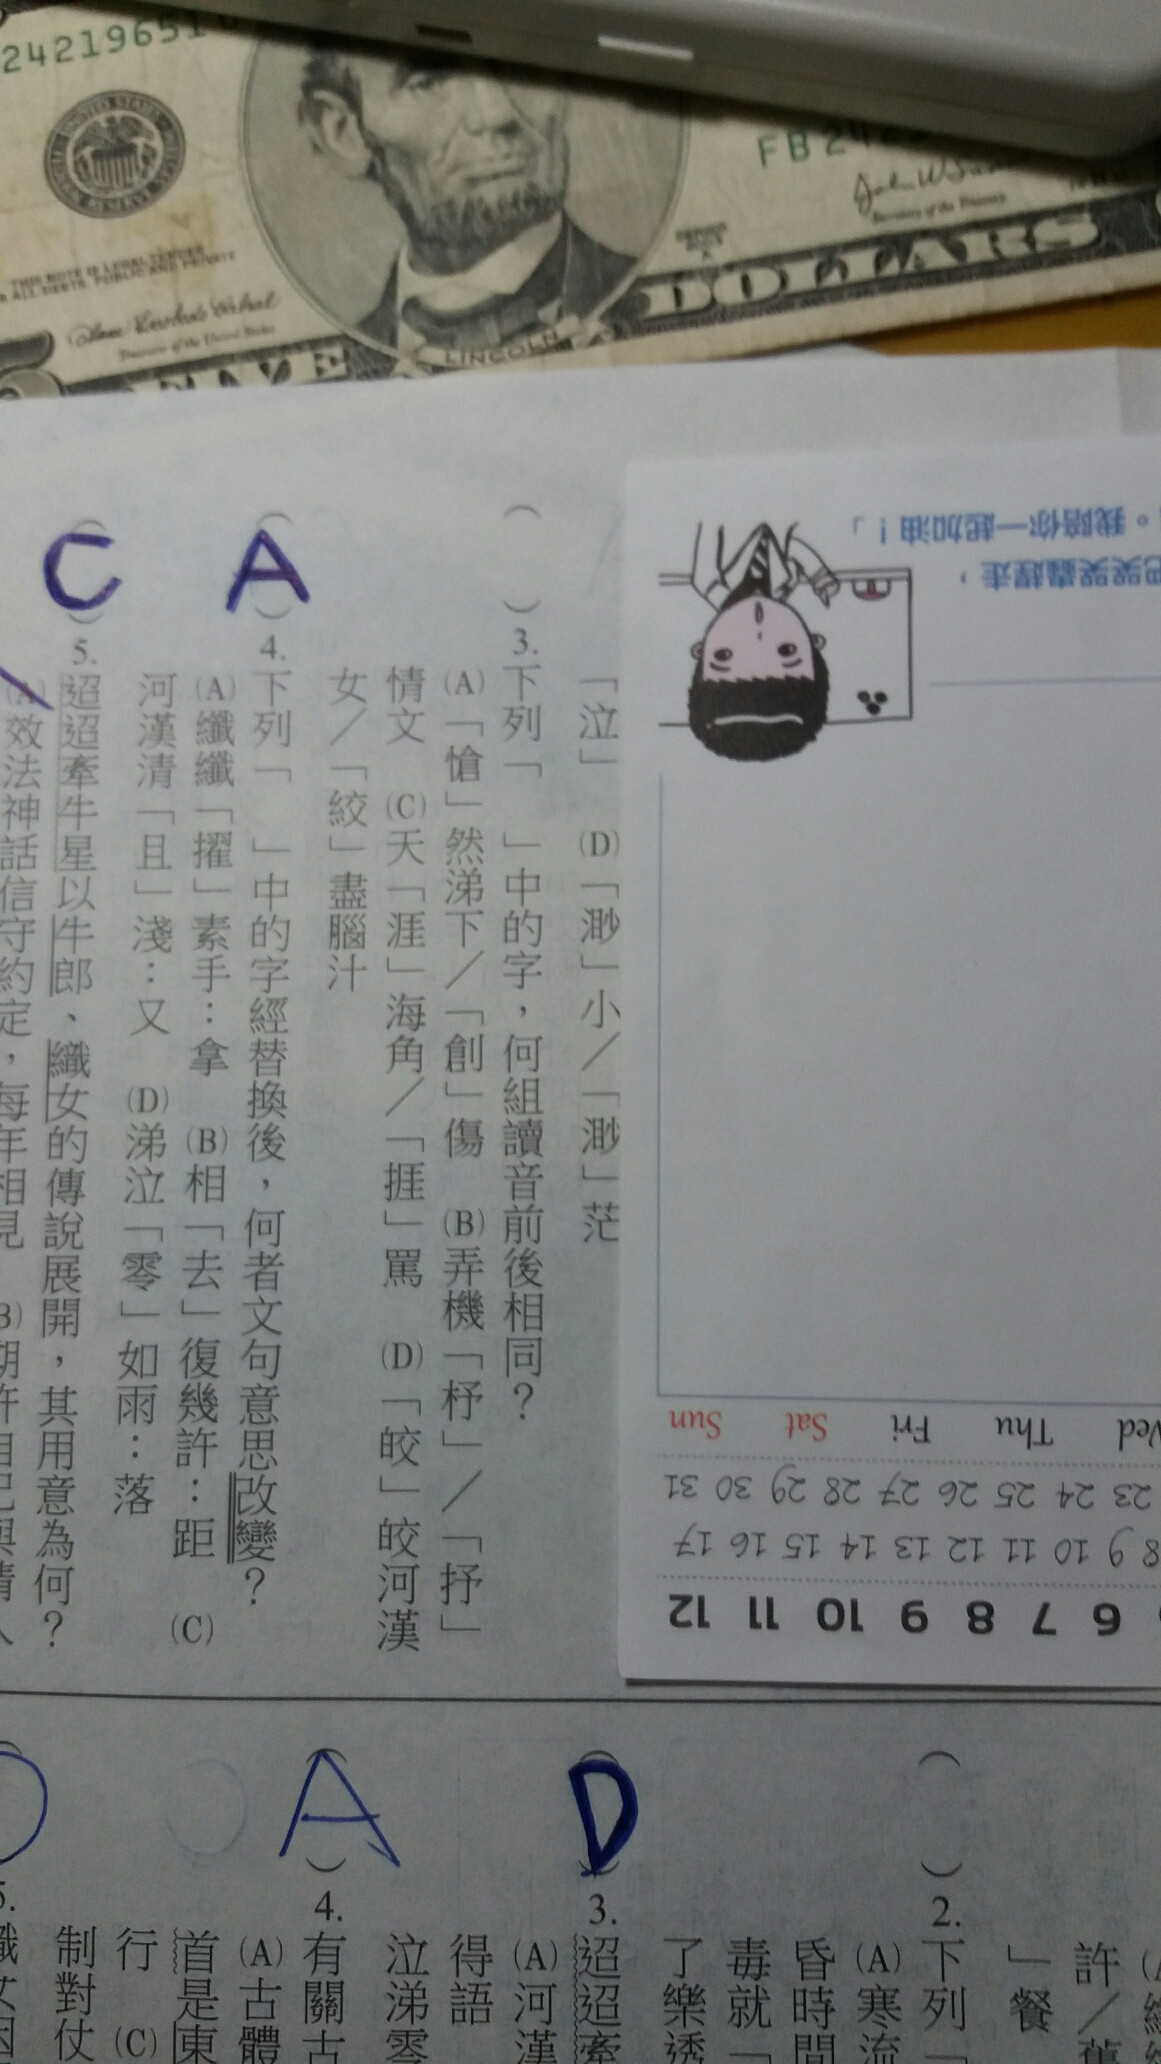 24219651
THIS NOTE IS LEGAL TENDER
ALL DEBTS, PUBLIC AND PRIVATE
Treasurer of the United States
LINCOLN
FB24
SERIES
Secretary of the Treasury
DOLLARS
我陪你一起加油!」
把哭哭蟲趕走,
「泣」 (D)「渺」小/「渺」茫
( )3.下列「 」中的字,何組讀音前後相同?
(A)「愴」然涕下/「創」傷 (B)弄機「杼」/「抒」
情文 (C)天「涯」海角/「捱」罵 (D)「皎」皎河漢
女/「絞」盡腦汁
(A)4.下列「 」中的字經替換後,何者文句意思改變?
(A)纖纖「擢」素手:拿 (B)相「去」復幾許:距 (C)
河漢清「且」淺:又 (D)涕泣「零」如雨:落
(C)5.迢迢牽牛星以牛郎、織女的傳說展開,其用意為何?
(A)效法神話信守約定,每年相見
Wed Thu Fri Sat Sun
23 24 25 26 27 28 29 30 31
8 9 10 11 12 13 14 15 16 17
6 7 8 9 10 11 12
許/
」餐
( )2.下列「
(A)寒流
昏時間
毒就「
了樂透
(D)3.迢迢牽
(A)河漢
得語
泣涕零
(A)4.有關古
(A)古體
首是東
行 (C)
制對仗